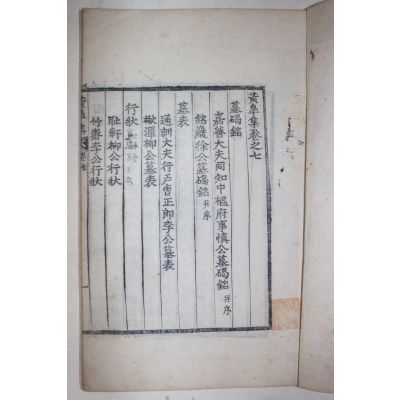 黃皐集卷之七
墓碣銘
嘉善大夫同知中樞府事愼公墓碣銘 并序
銘巖徐公墓碣銘 并序
墓表
通訓大夫行戶曹正郎李公墓表
潭柳公墓表
行狀
耻軒柳公行狀
竹齋李公行狀